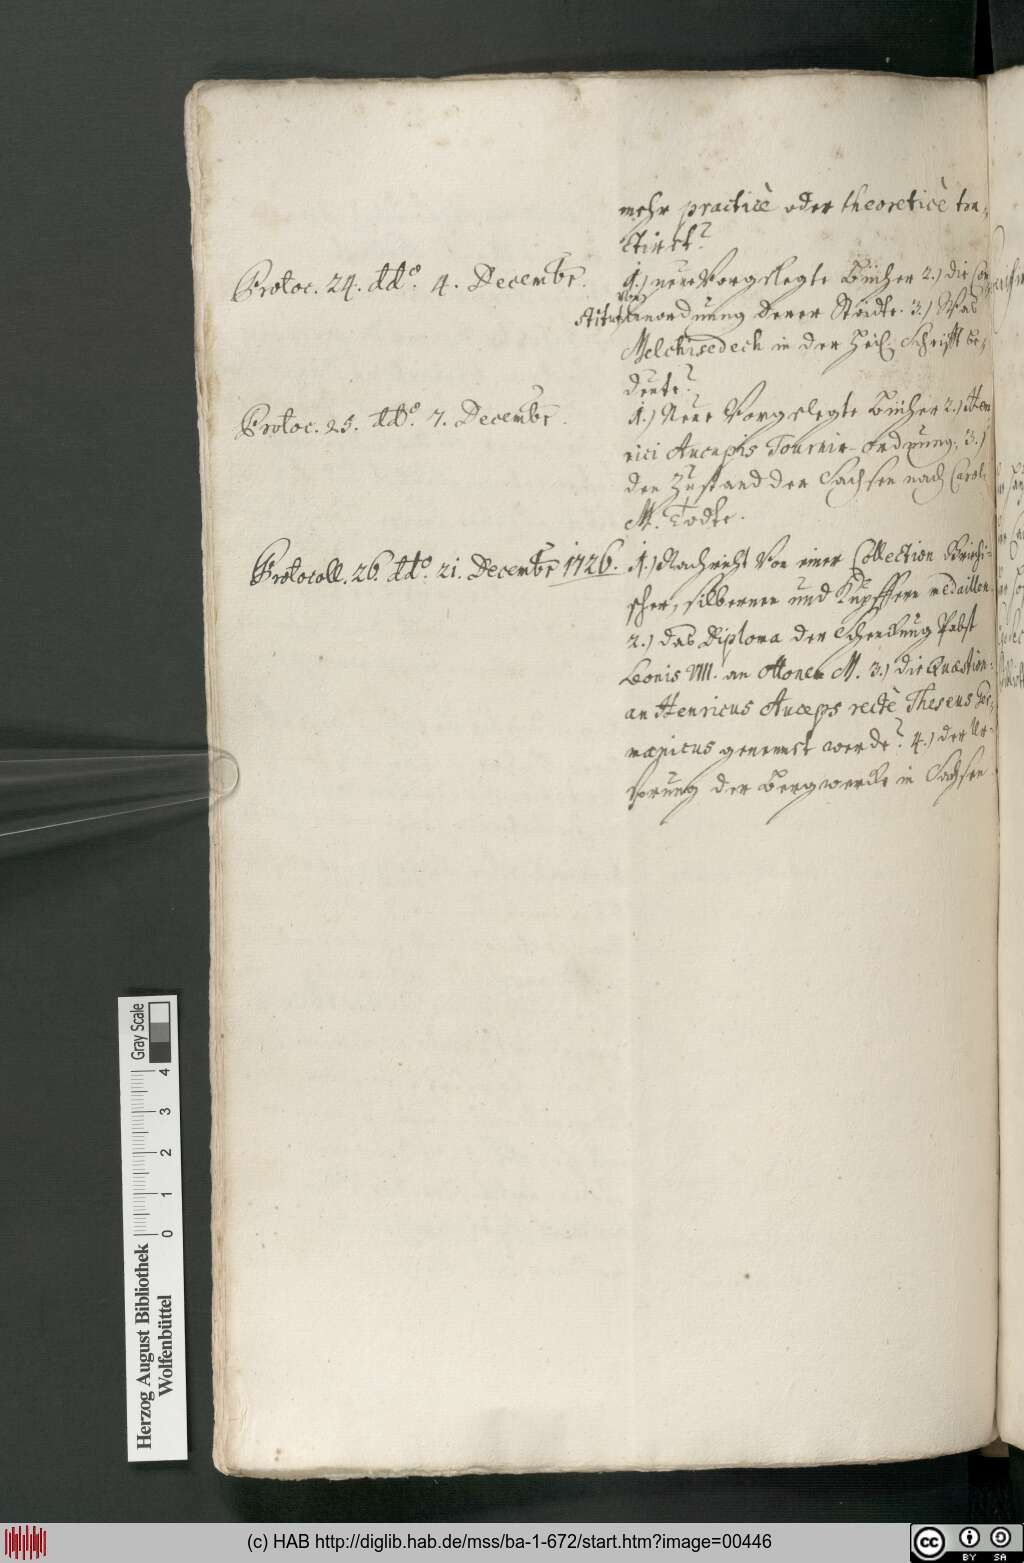 mehr practicè oder theoreticè tra-
ctiret?
Protoc. 24. dd°. 4. Decembr.
1.) neue Vorgelegte Bücher 2.) die
von
anordnung derer Städte. 3.) Was
Melchisedech in der Heil. Schrifft be-
deute?
Protoc. 25. dd°. 7. Decembr.
1.) Neue Vorgelegte Bücher 2.) Hen
rici Aucupis Tournir-Ordnung, 3.)
den Zustand der Sachsen nach Carol.
M. Todte.
Protocoll. 26. dd°. 21. Decembr 1726.
1.) Nachricht Von einer Collection Briechi-
scher, silbernen und Kupffern medaillen.
2.) das Diploma der Schenkung Pabst
Leonis VIII. an Ottonem M. 3.) die Quæstion:
an Henricus Auceps rectè Theseus Ger-
manicus genennet werde? 4.) der Ur-
sprung der Bergwercke in Sachsen
Gray Scale
0 1 2 3 4
Herzog August Bibliothek
Wolfenbüttel
(c) HAB http://diglib.hab.de/mss/ba-1-672/start.htm?image=00446
cc BY SA